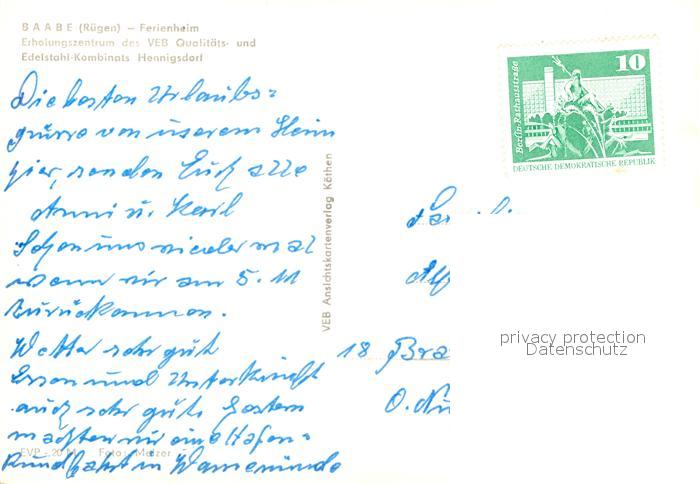 BAABE (Rügen) – Ferienheim
Erholungszentrum des VEB Qualitäts- und
Edelstahl-Kombinats Hennigsdorf
Die besten Urlaubs-
grüsse von unserem Heim
hier, senden Euch alle
Anni u. Karl
wenn wir am 5. 11
zurückkommen.
Wetter sehr gut
Essen und Unterkunft
auch sehr gut. Gestern
machten wir eine Hafen-
rundfahrt in Warnemünde
EVP -.20 M Foto: Melzer
VEB Ansichtskartenverlag Köthen
10
Berlin-Rathausstraße
DEUTSCHE DEMOKRATISCHE REPUBLIK
18 Bra
privacy protection
Datenschutz